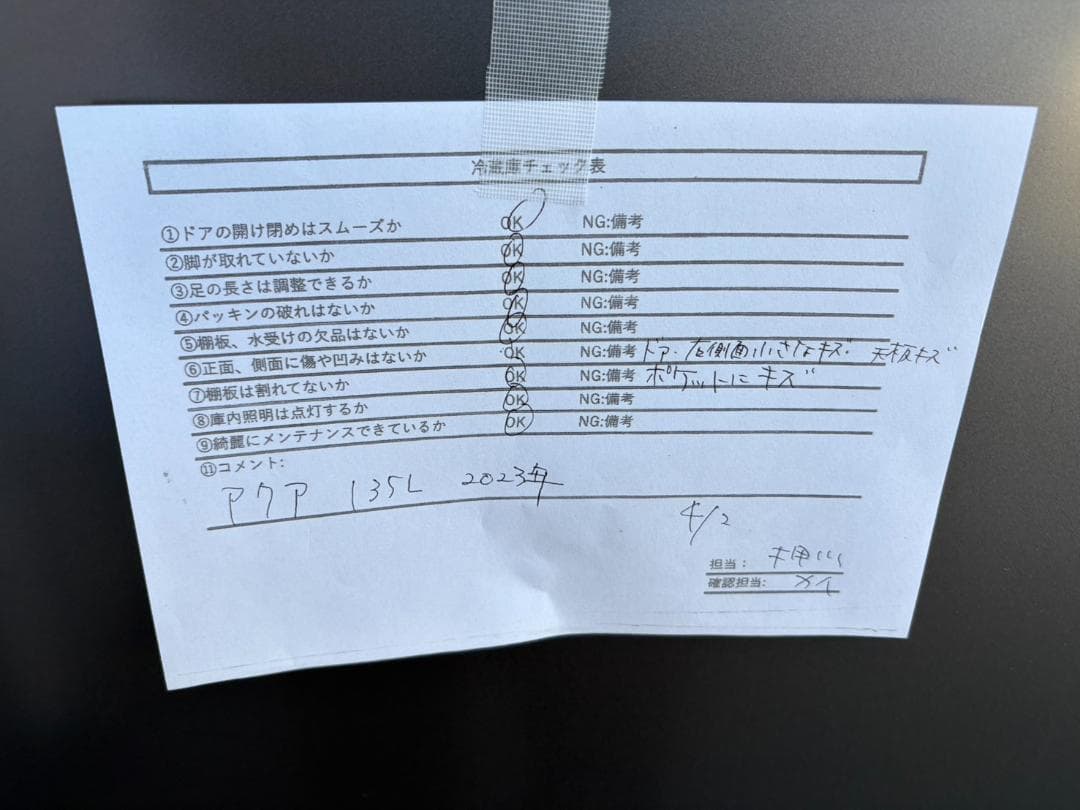 冷蔵庫チェック表
①ドアの開け閉めはスムーズか OK NG:備考
②脚が取れていないか OK NG:備考
③足の長さは調整できるか OK NG:備考
④パッキンの破れはないか OK NG:備考
⑤棚板、水受けの欠品はないか OK NG:備考
⑥正面、側面に傷や凹みはないか OK NG:備考 ドア・右側面小さなキズ・天板キズ
⑦棚板は割れてないか OK NG:備考 ポケットにキズ
⑧庫内照明は点灯するか OK NG:備考
⑨綺麗にメンテナンスできているか OK NG:備考
⑪コメント:
アクア 135L 2023年
4/2
担当:
確認担当: